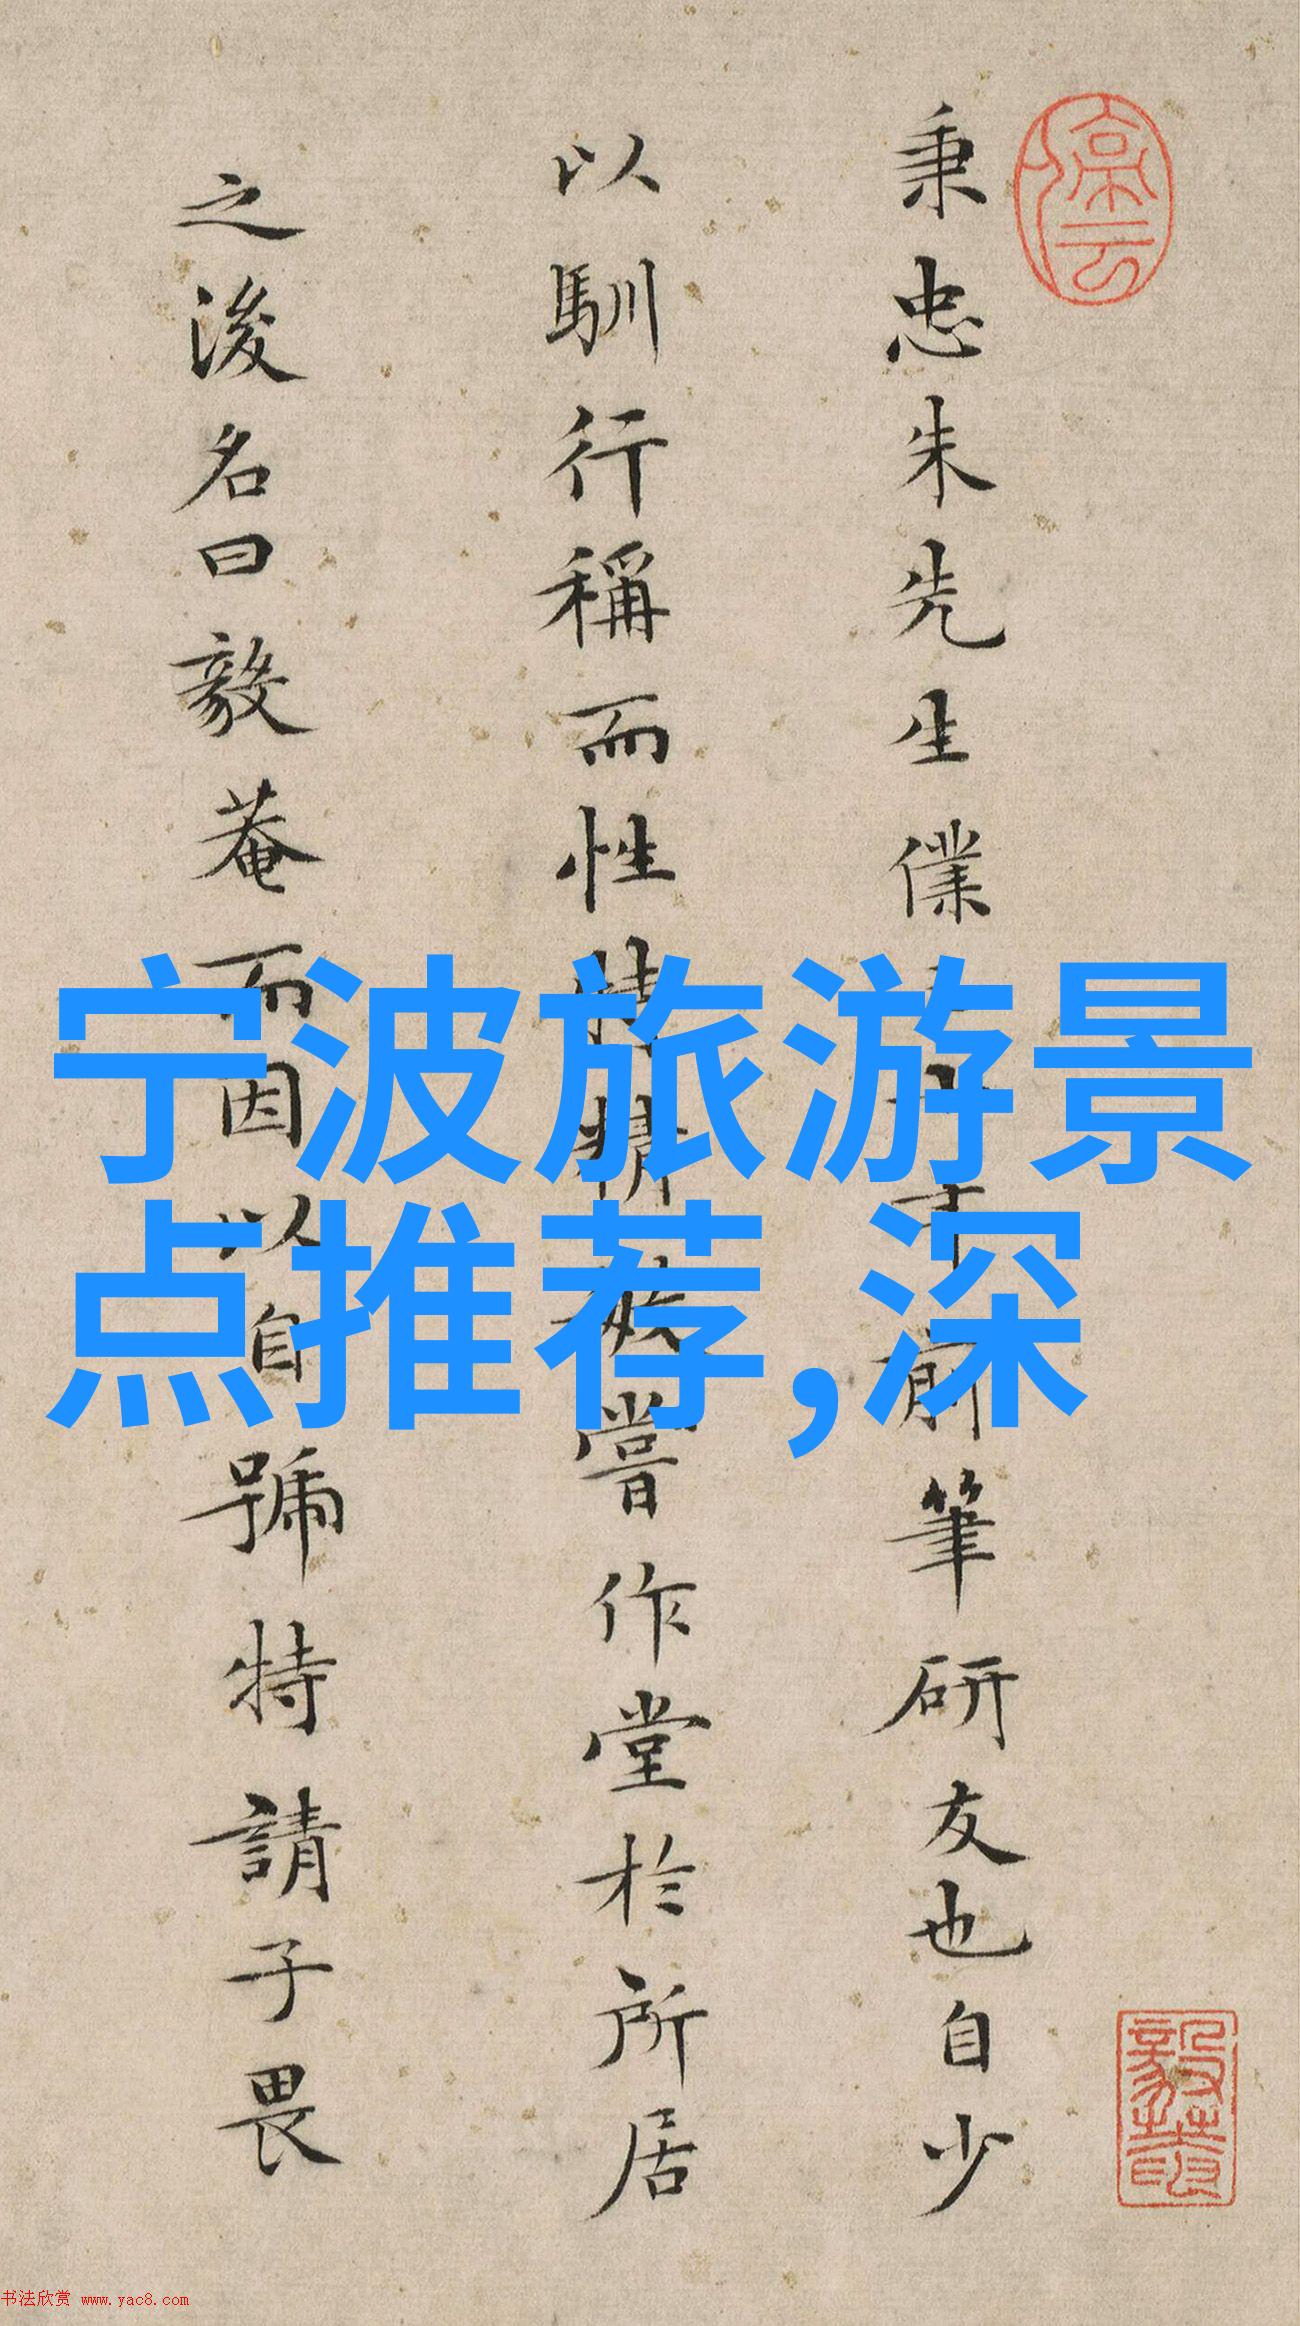 秉忠朱先生僕
前筆研友也自少
以馴行稱而性
嘗作堂於所居
之後名曰毅菴而因以自號特請子畏
宁波旅游景
点推荐,深
书法欣赏 www.yac8.com